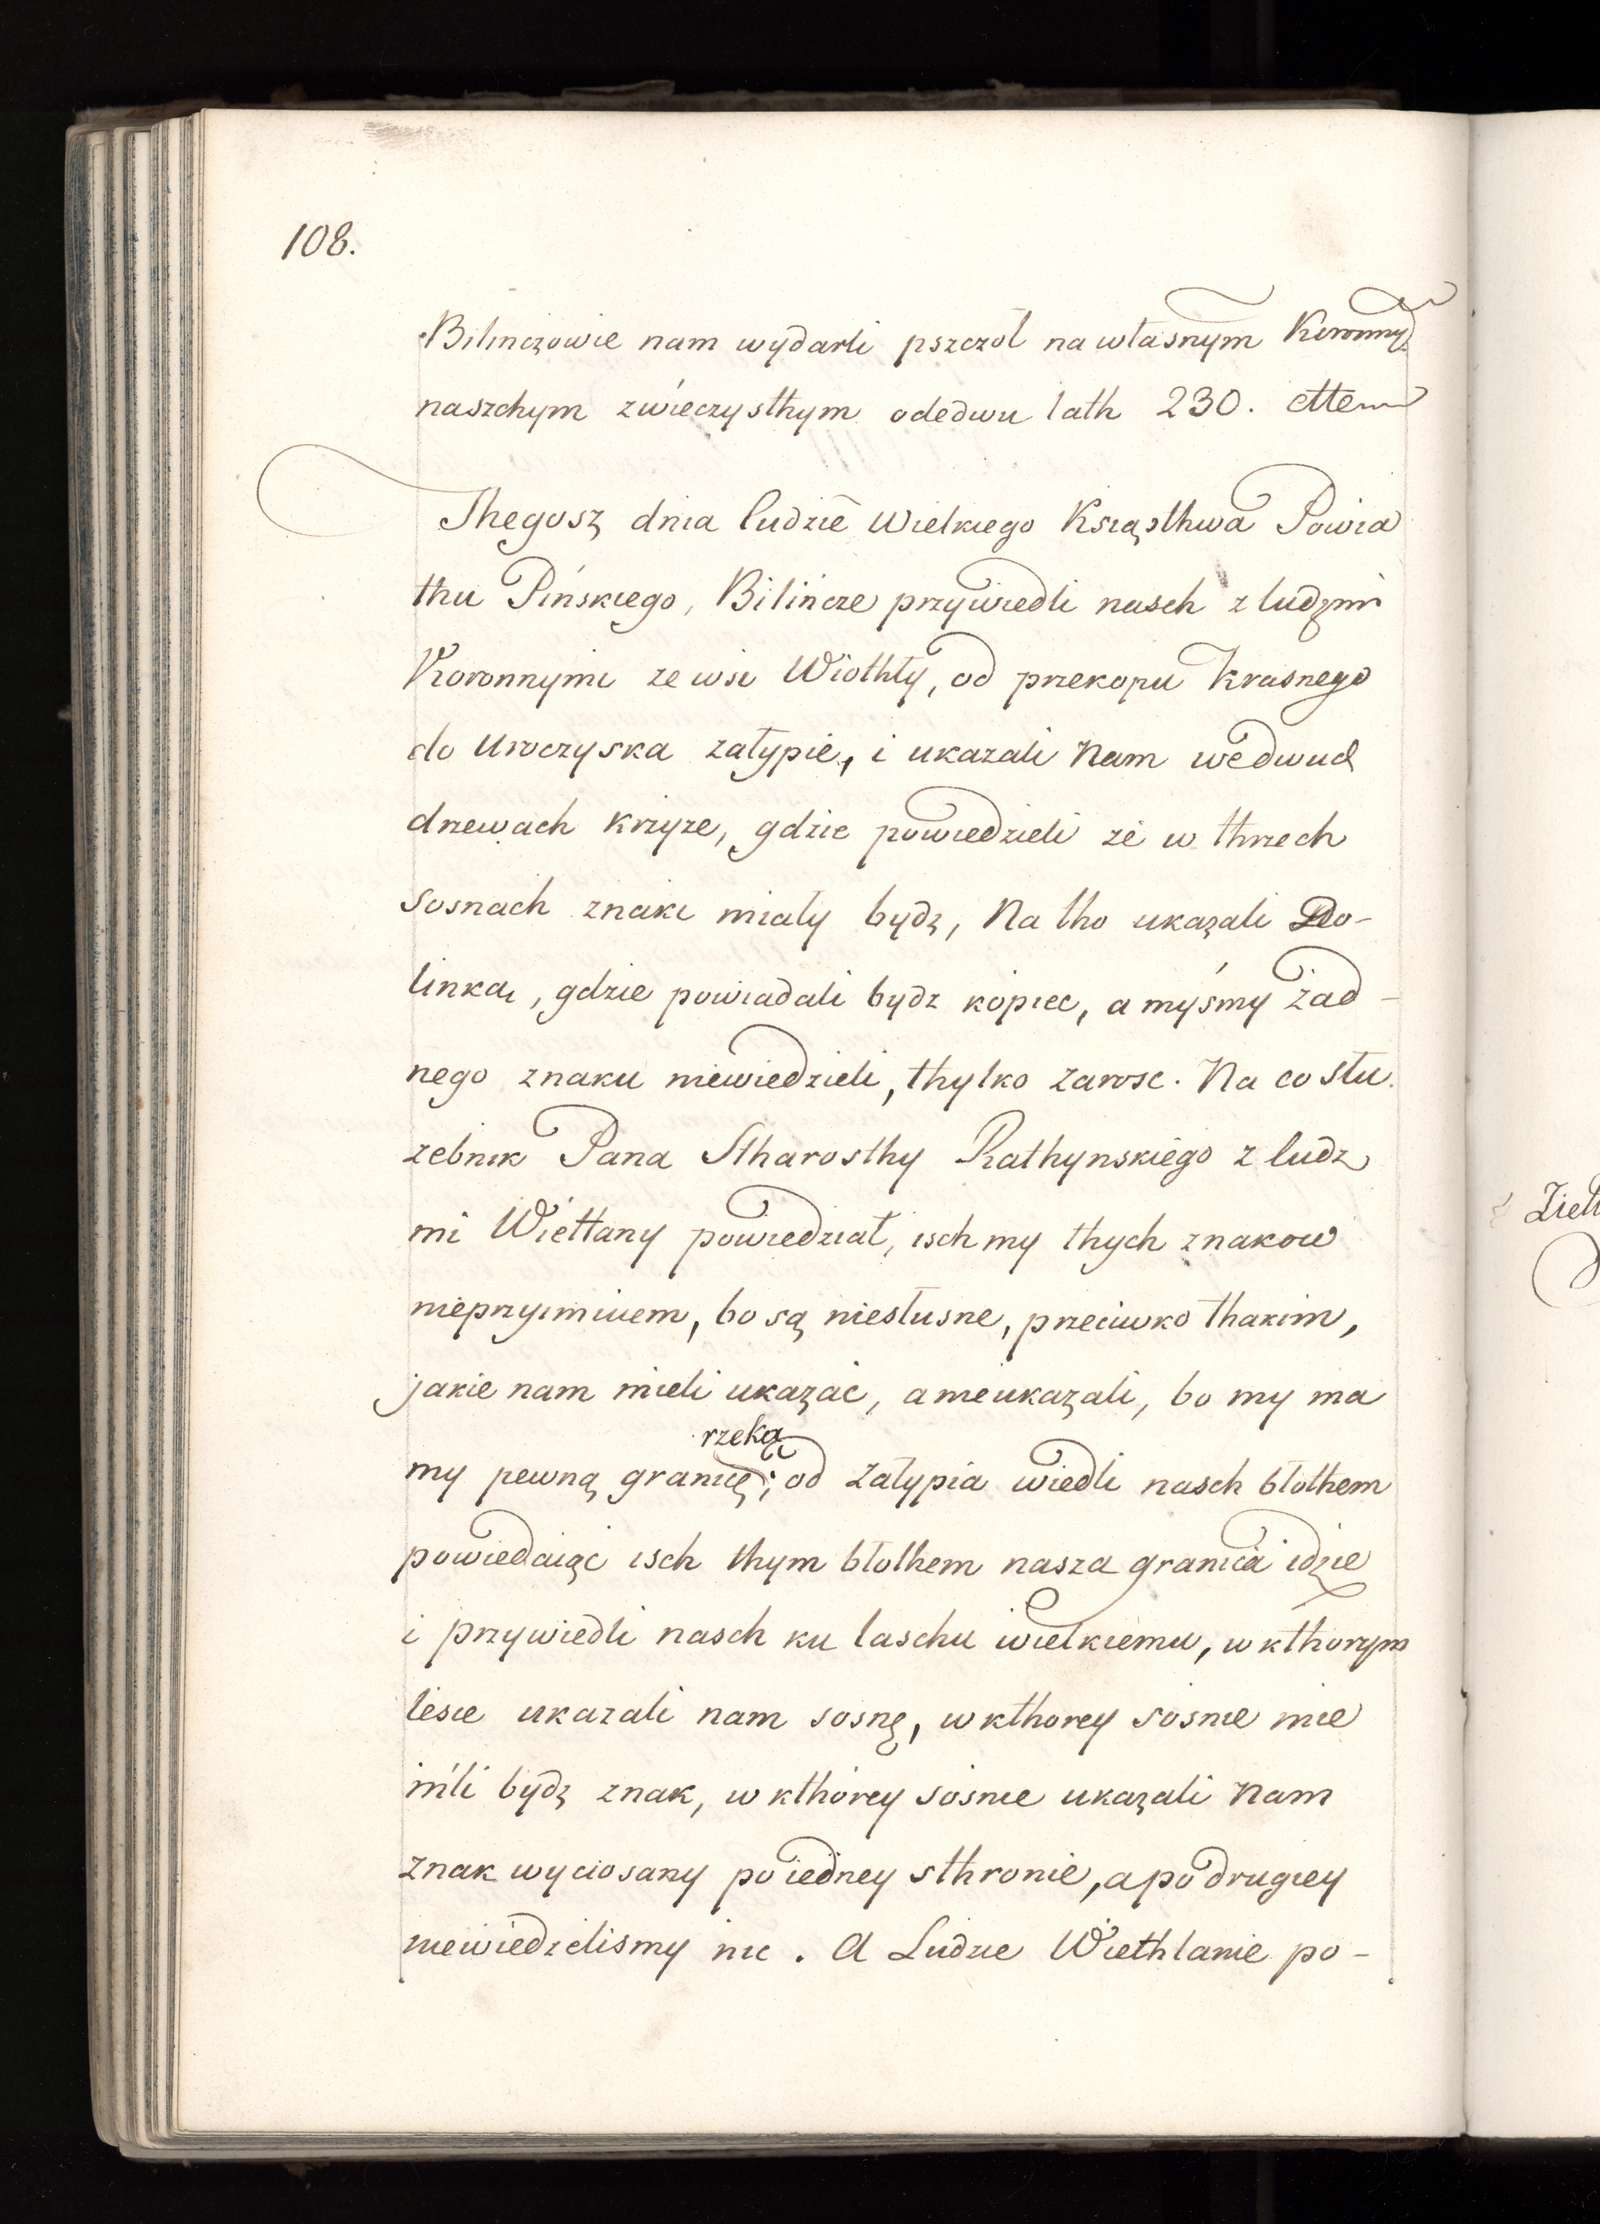 108.
Bilinczowie nam wydarli pszczol na własnym Koronny
naszchym zwieczysthym odedwu lath 230.
Thegosz dnia ludzie Wielkiego Ksiąsthwa Powia
thu Pińskiego, Bilińcze przywiedli nasch z ludzmi
Koronnymi ze wsi Wiothły, od przekopu Krasnego
do Uroczyska załypie, i ukazali Nam wedwuch
drzewach krzyze, gdzie powiedzieli ze w thrzech
Sosnach znaki miały bydz, Na tho ukazali Do-
linką, gdzie powiadali bydz kopiec, a myśmy żad-
nego znaku niewiedzieli, thylko zarosc. Na co słu
zebnik Pana Stharosthy Rathynskiego z ludz
mi Wietłany powiedział, isch my thych znakow
nieprzyimuiem, bo są niesłusne, przeciwko thakim,
jakie nam mieli ukazać, a nieukazali, bo my ma
rzeką
my pewną granicę; od załypia wiedli nasch błothem
powiedaiąc isch thym błothem nasza granica idzie
i przywiedli nasch ku laschu wielkiemu, w kthorym
lesie ukazali nam sosnę, w kthorey sosnie mie
nili bydz znak, w kthorey sosnie ukazali Nam
znak wyciosany po iedney sthronie, a po drugiey
niewiedzielismy nic. A Ludzie Wiethlanie po-